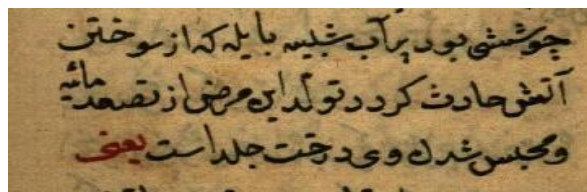 جوششی بود پر آب شبیه بابله که از سوختن
آتش حادث کردد و تولد این مرض از تصعد مائیه
و محتبس شدن وی در تحت جلد است یعنی